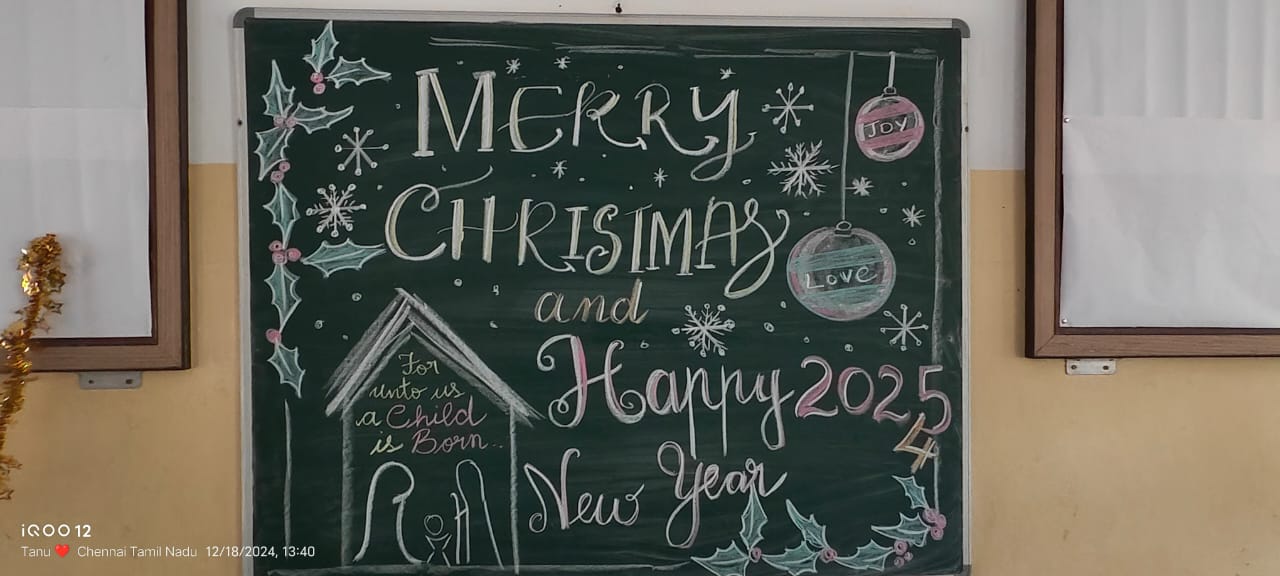 MERRY
CHRISTMAS
and
Happy 2025
4
New Year
JOY
LOVE
For
unto us
a Child
is Born...
iQOO 12
Tanu ❤️ Chennai Tamil Nadu 12/18/2024, 13:40